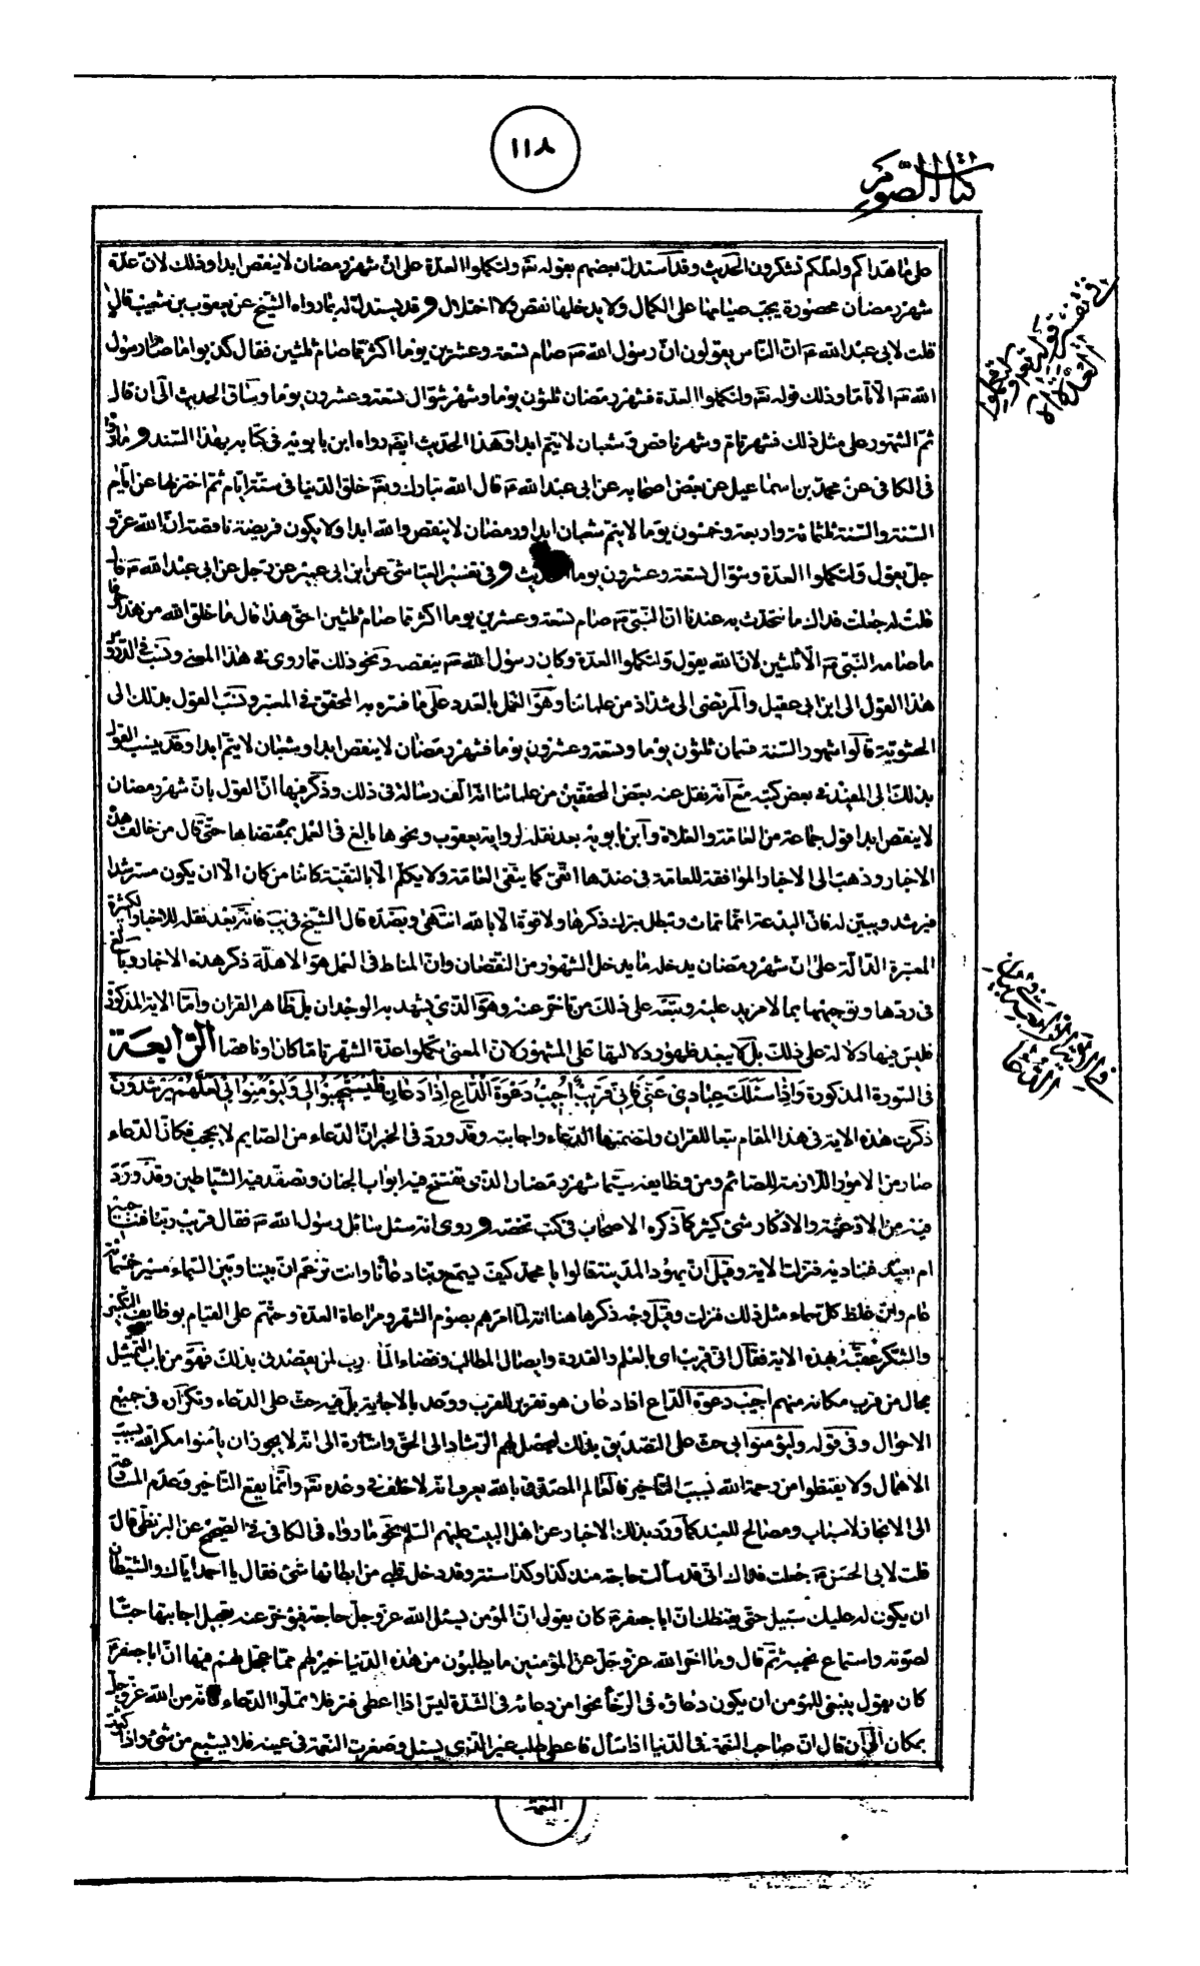 ١١٨
كتاب الصوم
على ما هداكم ولعلكم تشكرون الحديث وقد استدل بعضهم بقوله تع ولتكملوا العدة على ان شهر رمضان لا ينقص ابدا وذلك لان عدة
شهر رمضان محصورة يجب صيامها على الكمال ولا يدخلها نقص ولا اختلال وقد يستدل له بما رواه الشيخ عن يعقوب بن شعيب قال
قلت لابى عبد الله ع ان الناس يقولون ان رسول الله ص صام تسعة وعشرين يوما اكثر مما صام ثلثين فقال كذبوا ما صام رسول
الله ص الا تاما وذلك قوله تع ولتكملوا العدة فشهر رمضان ثلثون يوما وشهر شوال تسعة وعشرون يوما وساق الحديث الى ان قال
ثم الشهور على مثل ذلك فشهر تام وشهر ناقص وشعبان لا يتم ابدا وهذا الحديث ايضا رواه ابن بابويه فى كتابه بهذا السند وما رواه
فى الكافى عن محمد بن اسماعيل عن بعض اصحابه عن ابى عبد الله ع قال الله تبارك وتع خلق الدنيا فى ستة ايام ثم اختزلها عن ايام
السنة والسنة ثلثمائة واربعة وخمسون يوما لا يتم شعبان ابدا ورمضان لا ينقص والله ابدا ولا يكون فريضة ناقصة ان الله عز و
جل يقول ولتكملوا العدة وشوال تسعة وعشرون يوما الحديث وفى تفسير العياشى عن ابن ابى عمير عن رجل عن ابى عبد الله ع قال
قلت له جعلت فداك ما نتحدث به عندنا ان النبى ص صام تسعة وعشرين يوما اكثر مما صام ثلثين احق هذا قال ما خلق الله من هذا حرفا
ما صامه النبى ص الا ثلثين لان الله يقول ولتكملوا العدة وكان رسول الله ص ينقصه ونحو ذلك مما روى فى هذا المعنى ونسب فى الدروس
هذا القول الى ابن ابى عقيل والمرتضى الى شذاذ من علمائنا وهو العمل بالعدد على ما فسره به المحقق فى المعتبر ونسب القول بذلك الى
الحشوية قالوا شهور السنة قسمان ثلثون يوما وتسعة وعشرون يوما فشهر رمضان لا ينقص ابدا وشعبان لا يتم ابدا وقد ينسب القول
بذلك الى المفيد فى بعض كتبه مع انه نقل عنه بعض المحققين من علمائنا انه الف رسالة فى ذلك وذكر فيها ان القول بان شهر رمضان
لا ينقص ابدا قول جماعة من العامة والغلاة وابن بابويه بعد نقله لرواية يعقوب ونحوها بالغ فى العمل بمقتضاها حتى قال من خالف هذه
الاخبار وذهب الى الاخبار الموافقة للعامة فى ضدها اتقى كما يتقى العامة ولا يكلم الا بالتقية كائنا من كان الا ان يكون مسترشدا
فيرشد ويبين له فان البدعة انما تمات وتبطل بترك ذكرها ولا قوة الا بالله انتهى وبضده قال الشيخ فى يب فانه بعد نقله للاخبار الكثيرة
المعتبرة الدالة على ان شهر رمضان يدخله ما يدخل الشهور من النقصان وان المناط فى العمل هو الاهلة ذكر هذه الاخبار وبالغ
فى ردها وتوجيهها بما لا مزيد عليه وتبعه على ذلك من تاخر عنه وهو الذى يشهد به الوجدان بل ظاهر القران واما الاية المذكورة
فليس فيها دلالة على ذلك بل لا يبعد ظهور دلالتها على المشهور لان المعنى تكملوا عدة الشهر تاما كان او ناقصا الرابعة
فى السورة المذكورة واذا سئلك عبادى عنى فانى قريب اجيب دعوة الداع اذا دعان فليستجيبوا لى وليؤمنوا بى لعلهم يرشدون
ذكرت هذه الاية فى هذا المقام تبعا للقران ولتضمنها الدعاء واجابته وقد ورد فى الخبر ان الدعاء من الصايم لا يحجب فكان الدعاء
صار من الامور اللازمة للصائم ومن وظايفه سيما شهر رمضان الذى تفتتح فيه ابواب الجنان وتصفد فيه الشياطين وقد ورد
فيه من الادعية والاذكار شئ كثير كما ذكره الاصحاب فى كتب تخصه وروى انه سئل سائل رسول الله ص فقال قريب ربنا فنناجيه
ام بعيد فنناديه فنزلت الاية وقيل ان يهود المدينة قالوا يا محمد كيف يسمع ربنا دعائنا وانت تزعم ان بيننا وبين السماء مسير خمسمائة
عام وان غلظ كل سماء مثل ذلك فنزلت وقيل وجه ذكرها هنا انه لما امرهم بصوم الشهر ومراعاة العدة وحثهم على القيام بوظايف التكبير
والشكر عقبه بهذه الاية فقال انى قريب اى بالعلم والقدرة وايصال المطالب وقضاء المارب لمن يقصدنى بذلك فهو من باب التمثيل
بحال من قرب مكانه منهم اجيب دعوة الداع اذا دعان هو تقرير للقرب ووعد بالاجابة بل فيه حث على الدعاء وتكراره فى جميع
الاحوال وفى قوله وليؤمنوا بى حث على التصديق بذلك ليحصل لهم الرشاد الى الحق واشارة الى انه لا يجوز ان يأمنوا مكر الله بسبب
الاهمال ولا يقنطوا من رحمة الله بسبب التاخير فالعالم المصدق بالله يعرف انه لا خلف فى وعده تع وانما يقع التاخير وعدم المسارعة
الى الانجاز لاسباب ومصالح للعبد كما ورد بذلك الاخبار عن اهل البيت عليهم السلم نحو ما رواه فى الكافى فى الصحيح عن البزنطى قال
قلت لابى الحسن ع جعلت فداك انى قد سألت حاجة منذ كذا وكذا سنة وقد دخل قلبى من ابطائها شئ فقال يا احمد اياك والشيطان
ان يكون له عليك سبيل حتى يقنطك ان ابا جعفر ع كان يقول ان المؤمن يسئل الله عز وجل حاجة فيؤخر عنه تعجيل اجابتها حبا
لصوته واستماع نحيبه ثم قال وما اخر الله عز وجل عن المؤمنين ما يطلبون من هذه الدنيا خير لهم مما عجل لهم فيها ان ابا جعفر ع
كان يقول ينبغى للمؤمن ان يكون دعاؤه فى الرخا نحوا من دعائه فى الشدة ليس اذا اعطى فتر فلا تملوا الدعاء فانه من الله عز وجل
بمكان الى ان قال ان صاحب النعمة فى الدنيا اذا سأل فاعطى طلب غير الذى يسئل وصغرت النعمة فى عينه فلا يشبع من شئ واذا كثرت
النعمة
فى تفسير قوله تعالى ولتكملوا
العدة الآية
فى الاية الرابعة فى بيان
الدعا